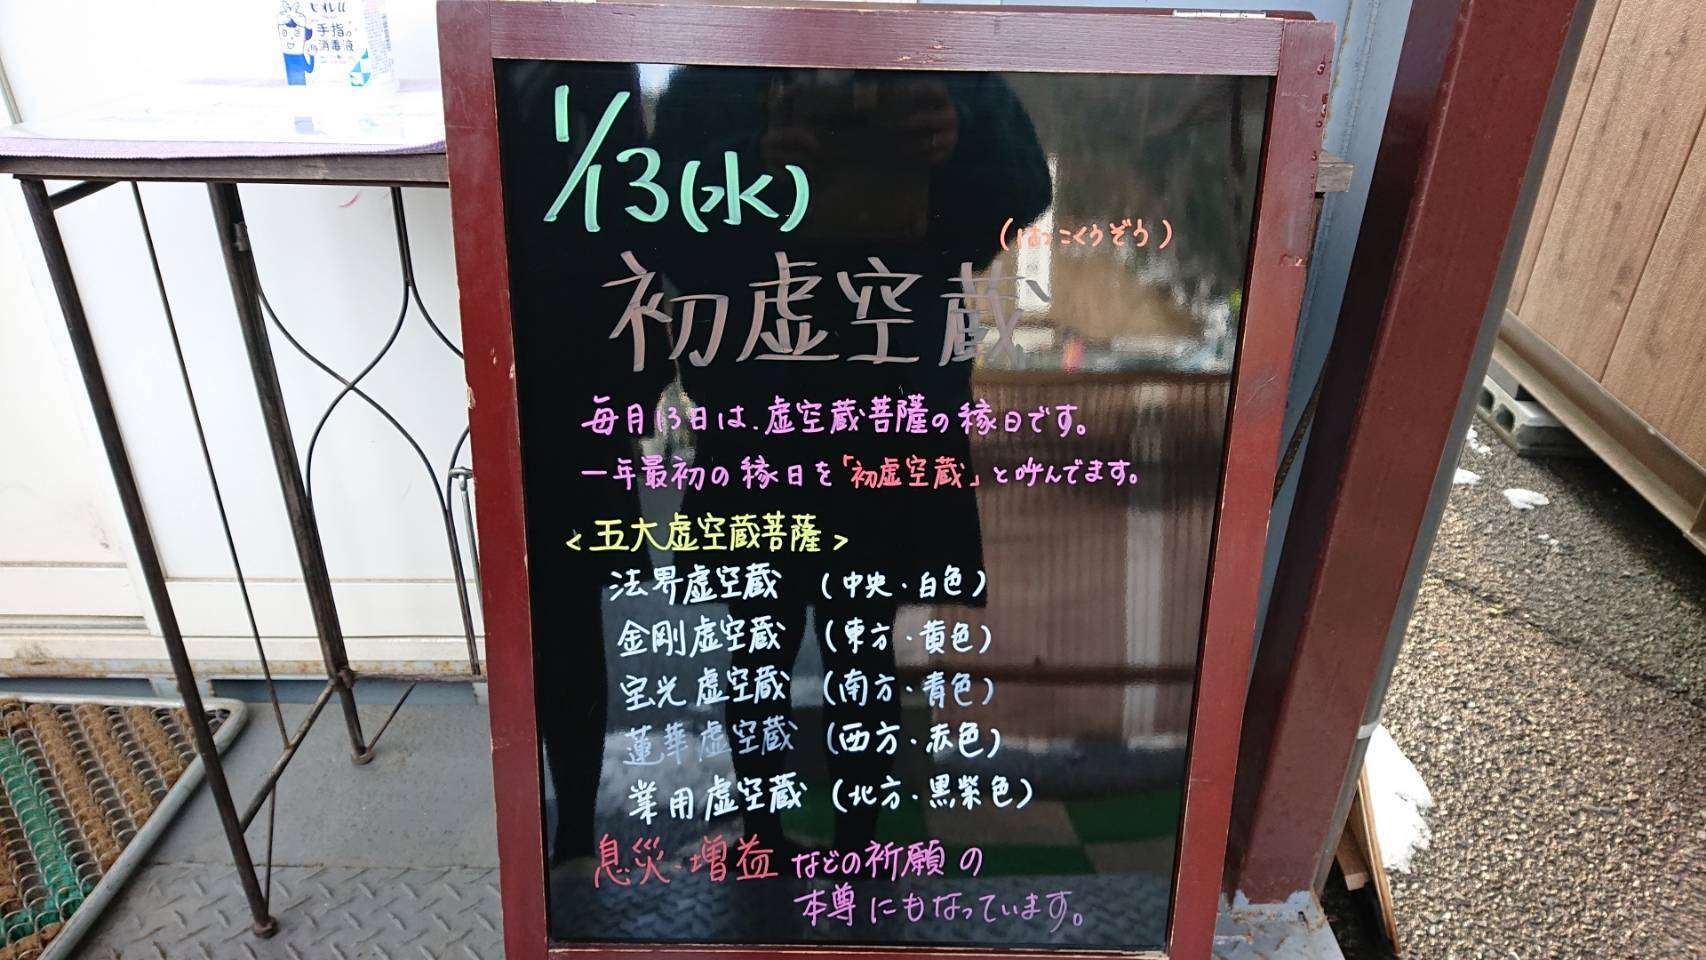 ビオレu
手指の
消毒液
1/13(水)
(はつこくうぞう)
初虚空蔵
毎月13日は、虚空蔵菩薩の縁日です。
一年最初の縁日を「初虚空蔵」と呼んでます。
<五大虚空蔵菩薩>
法界虚空蔵 (中央・白色)
金剛虚空蔵 (東方・黄色)
宝光虚空蔵 (南方・青色)
蓮華虚空蔵 (西方・赤色)
業用虚空蔵 (北方・黒紫色)
息災・増益 などの祈願の
本尊にもなっています。